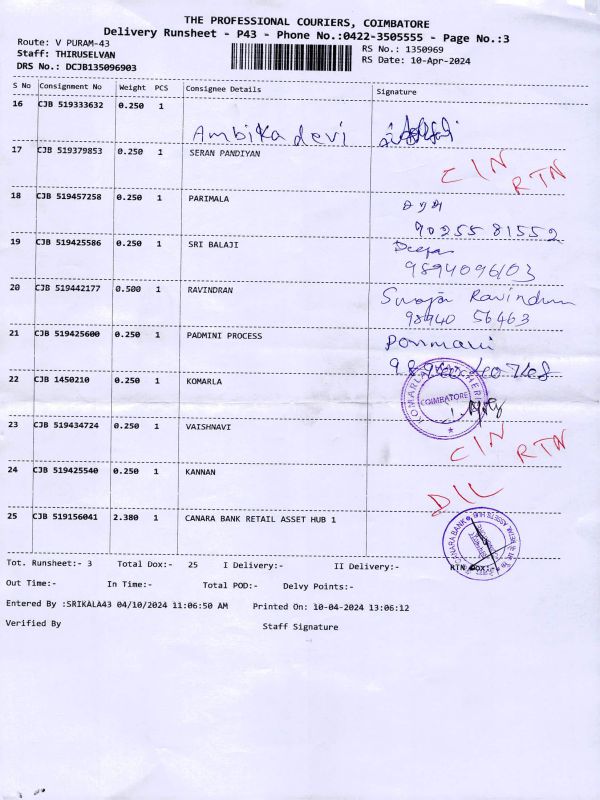 THE PROFESSIONAL COURIERS, COIMBATORE
Delivery Runsheet - P43 - Phone No.:0422-3505555 - Page No.:3
Route: V PURAM-43 RS No.: 1350969
Staff: THIRUSELVAN RS Date: 10-Apr-2024
DRS No.: DCJB135096903
S No Consignment No Weight PCS Consignee Details Signature
16 CJB 519333632 0.250 1
Ambika devi
17 CJB 519379853 0.250 1 SERAN PANDIYAN CIN RTN
18 CJB 519457258 0.250 1 PARIMALA
90255 81552
19 CJB 519425586 0.250 1 SRI BALAJI Deepa
9894096103
20 CJB 519442177 0.500 1 RAVINDRAN Ravindran
98940 56463
21 CJB 519425600 0.250 1 PADMINI PROCESS Ponmani
22 CJB 1450210 0.250 1 KOMARLA COIMBATORE
23 CJB 519434724 0.250 1 VAISHNAVI CIN RTN
24 CJB 519425540 0.250 1 KANNAN DIL
25 CJB 519156041 2.380 1 CANARA BANK RETAIL ASSET HUB 1 CANARA BANK
Tot. Runsheet:- 3 Total Dox:- 25 I Delivery:- II Delivery:- RTN Dox:-
Out Time:- In Time:- Total POD:- Delvy Points:-
Entered By :SRIKALA43 04/10/2024 11:06:50 AM Printed On: 10-04-2024 13:06:12
Verified By Staff Signature